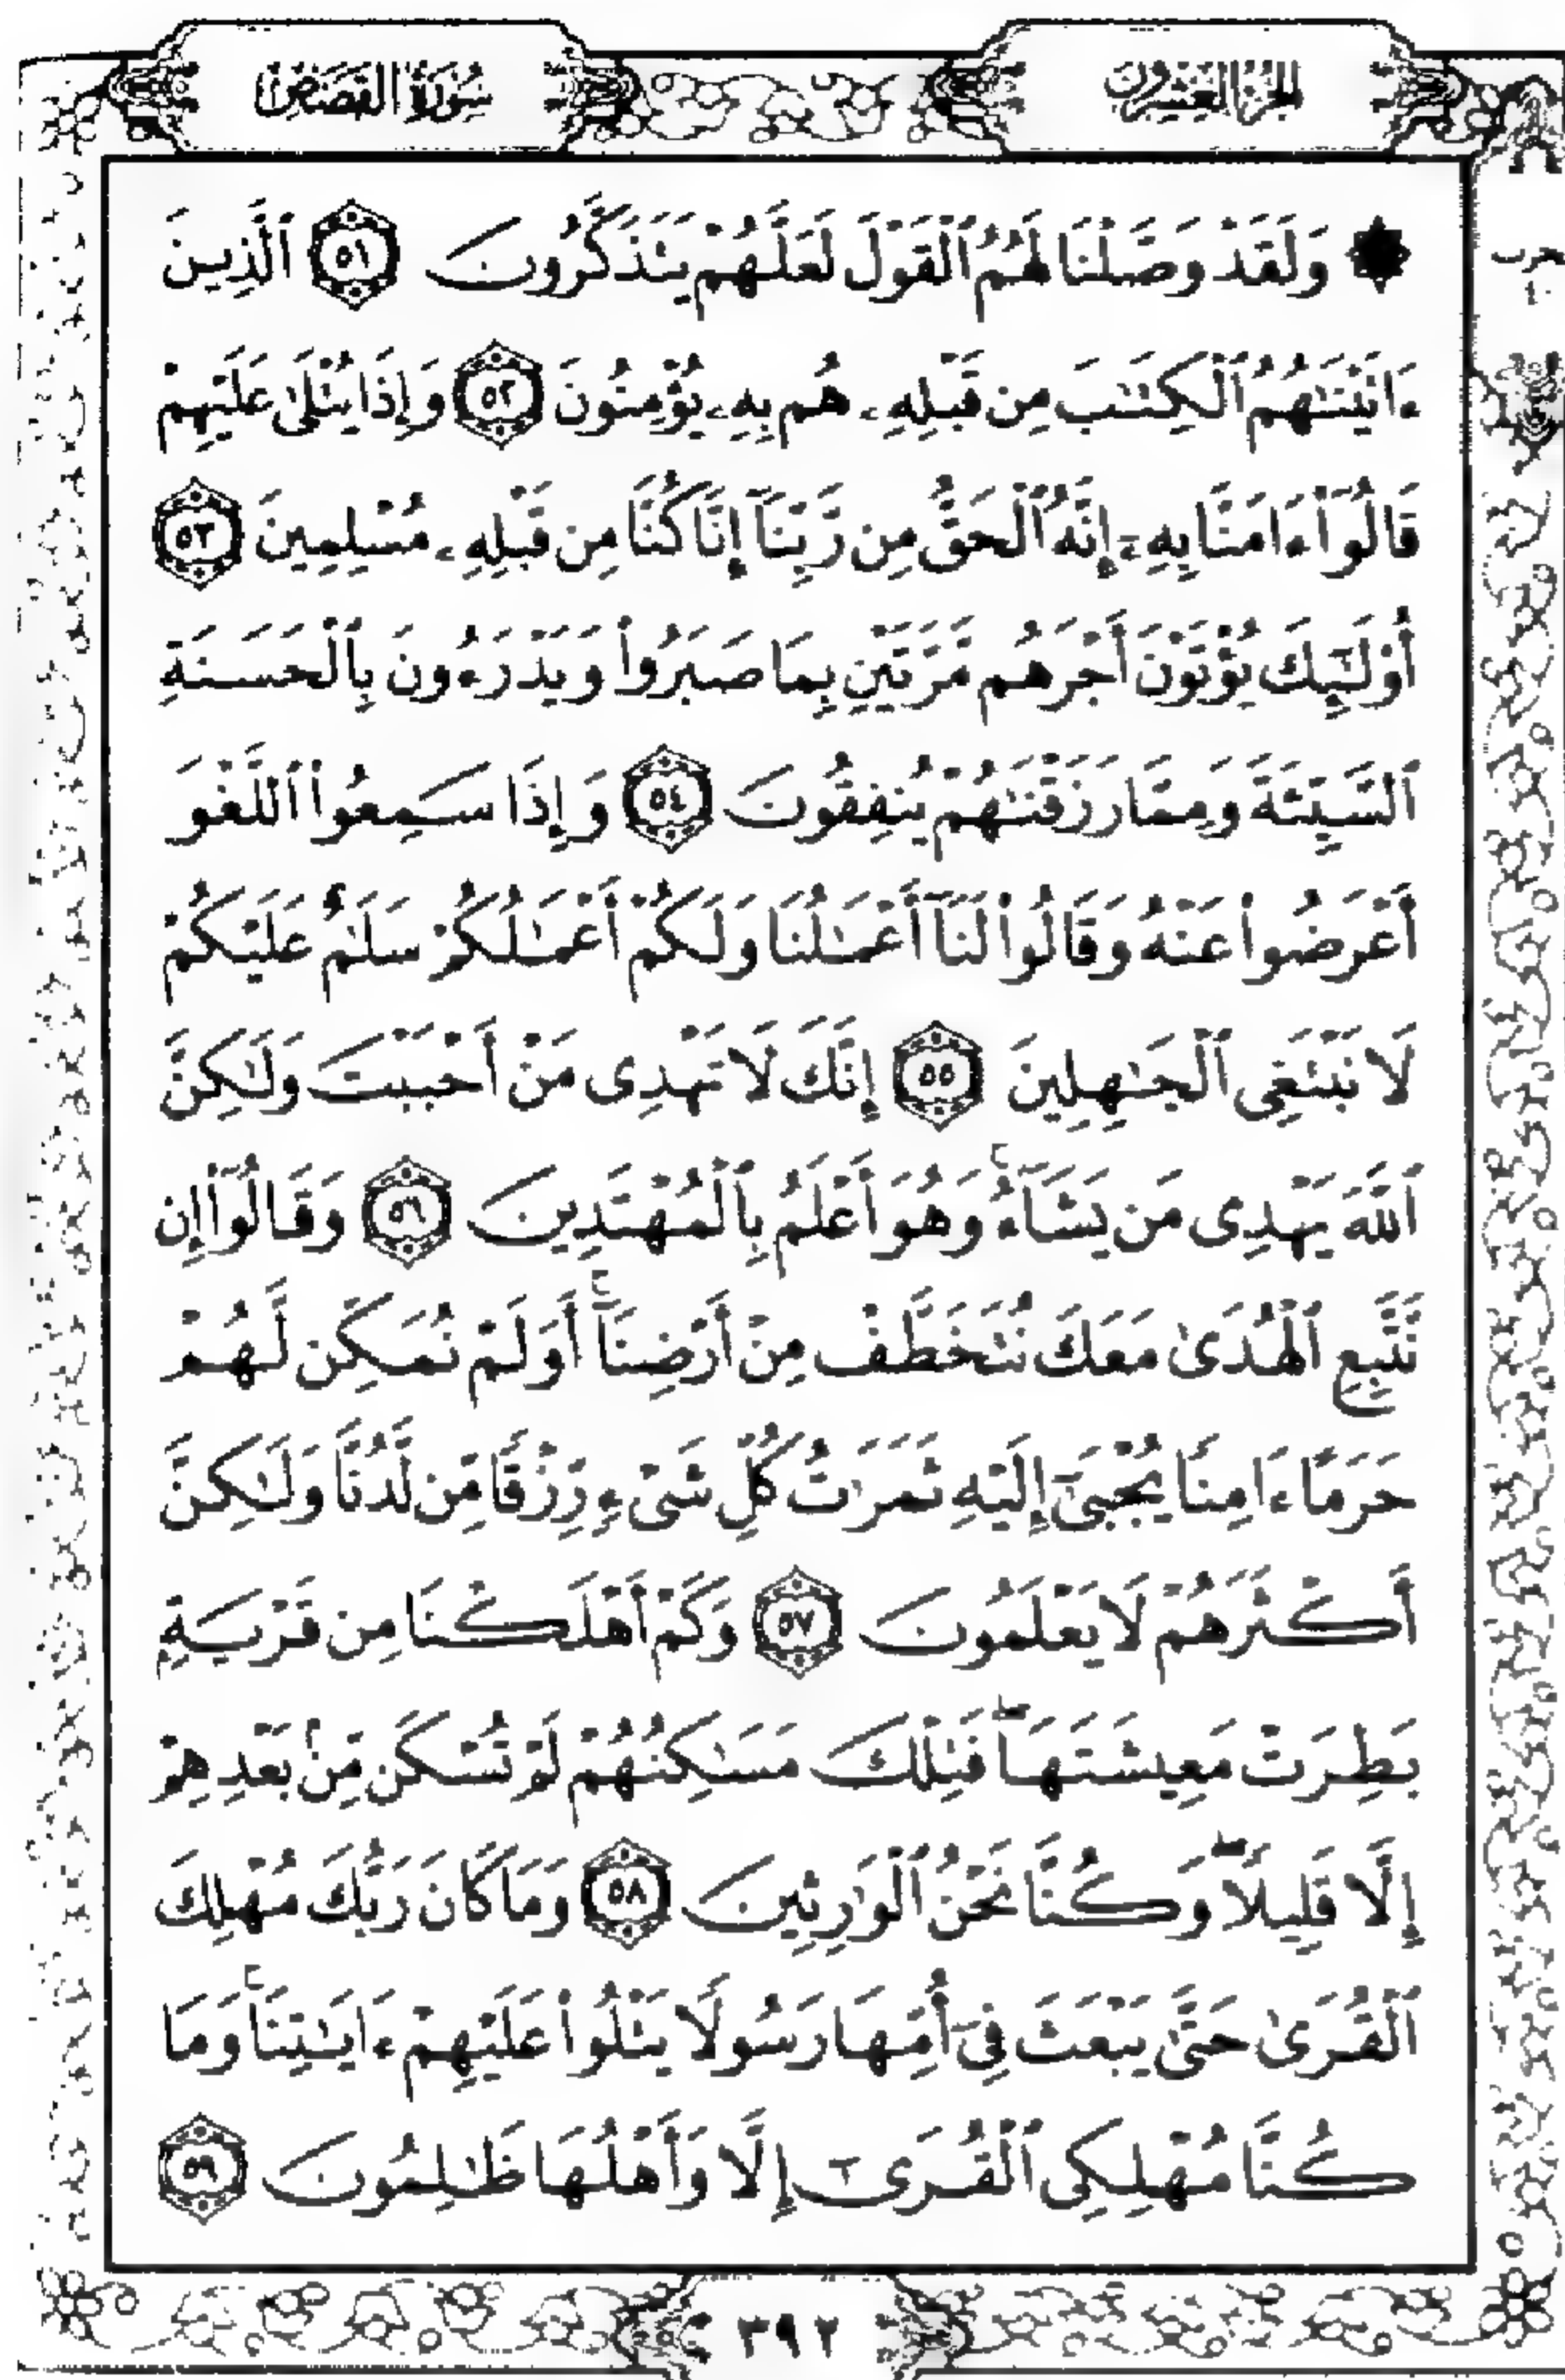 الجزء العشرون
سورة القصص
۞ وَلَقَدْ وَصَّلْنَا لَهُمُ ٱلْقَوْلَ لَعَلَّهُمْ يَتَذَكَّرُونَ ٥١ ٱلَّذِينَ
ءَاتَيْنَٰهُمُ ٱلْكِتَٰبَ مِن قَبْلِهِۦ هُم بِهِۦ يُؤْمِنُونَ ٥٢ وَإِذَا يُتْلَىٰ عَلَيْهِمْ
قَالُوٓا۟ ءَامَنَّا بِهِۦٓ إِنَّهُ ٱلْحَقُّ مِن رَّبِّنَآ إِنَّا كُنَّا مِن قَبْلِهِۦ مُسْلِمِينَ ٥٣
أُو۟لَٰٓئِكَ يُؤْتَوْنَ أَجْرَهُم مَّرَّتَيْنِ بِمَا صَبَرُوا۟ وَيَدْرَءُونَ بِٱلْحَسَنَةِ
ٱلسَّيِّئَةَ وَمِمَّا رَزَقْنَٰهُمْ يُنفِقُونَ ٥٤ وَإِذَا سَمِعُوا۟ ٱللَّغْوَ
أَعْرَضُوا۟ عَنْهُ وَقَالُوا۟ لَنَآ أَعْمَٰلُنَا وَلَكُمْ أَعْمَٰلُكُمْ سَلَٰمٌ عَلَيْكُمْ
لَا نَبْتَغِى ٱلْجَٰهِلِينَ ٥٥ إِنَّكَ لَا تَهْدِى مَنْ أَحْبَبْتَ وَلَٰكِنَّ
ٱللَّهَ يَهْدِى مَن يَشَآءُ ۚ وَهُوَ أَعْلَمُ بِٱلْمُهْتَدِينَ ٥٦ وَقَالُوٓا۟ إِن
نَّتَّبِعِ ٱلْهُدَىٰ مَعَكَ نُتَخَطَّفْ مِنْ أَرْضِنَآ ۚ أَوَلَمْ نُمَكِّن لَّهُمْ
حَرَمًا ءَامِنًا يُجْبَىٰٓ إِلَيْهِ ثَمَرَٰتُ كُلِّ شَىْءٍ رِّزْقًا مِّن لَّدُنَّا وَلَٰكِنَّ
أَكْثَرَهُمْ لَا يَعْلَمُونَ ٥٧ وَكَمْ أَهْلَكْنَا مِن قَرْيَةٍۭ
بَطِرَتْ مَعِيشَتَهَا ۖ فَتِلْكَ مَسَٰكِنُهُمْ لَمْ تُسْكَن مِّنۢ بَعْدِهِمْ
إِلَّا قَلِيلًا ۖ وَكُنَّا نَحْنُ ٱلْوَٰرِثِينَ ٥٨ وَمَا كَانَ رَبُّكَ مُهْلِكَ
ٱلْقُرَىٰ حَتَّىٰ يَبْعَثَ فِىٓ أُمِّهَا رَسُولًا يَتْلُوا۟ عَلَيْهِمْ ءَايَٰتِنَا ۚ وَمَا
كُنَّا مُهْلِكِى ٱلْقُرَىٰٓ إِلَّا وَأَهْلُهَا ظَٰلِمُونَ ٥٩
٣٩٢